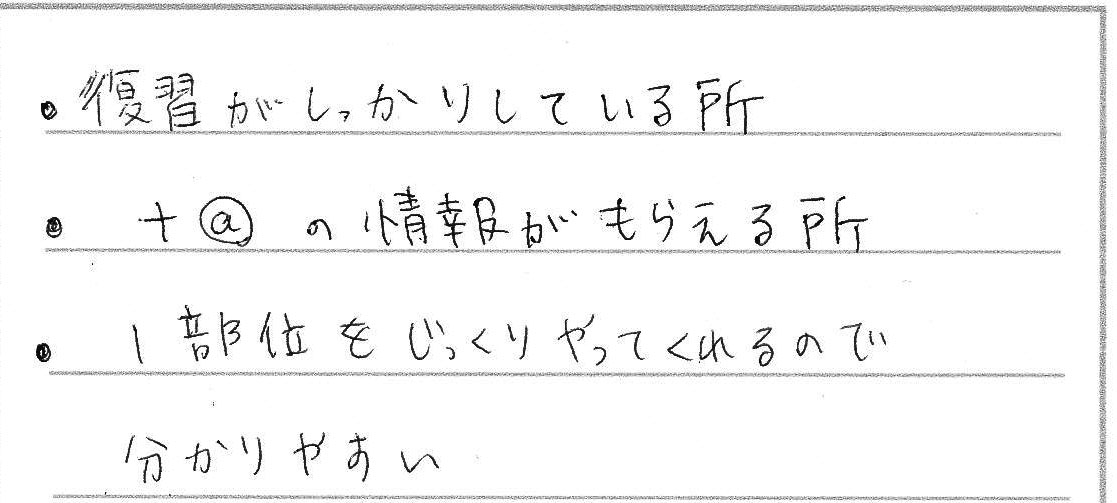 ・復習がしっかりしている所
・+ⓐの情報がもらえる所
・1部位をじっくりやってくれるので
分かりやすい